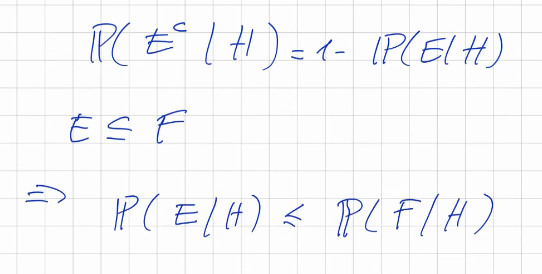 ℙ(E^c | H) = 1 - ℙ(E | H)
E ⊆ F
⇒ ℙ(E | H) ≤ ℙ(F | H)